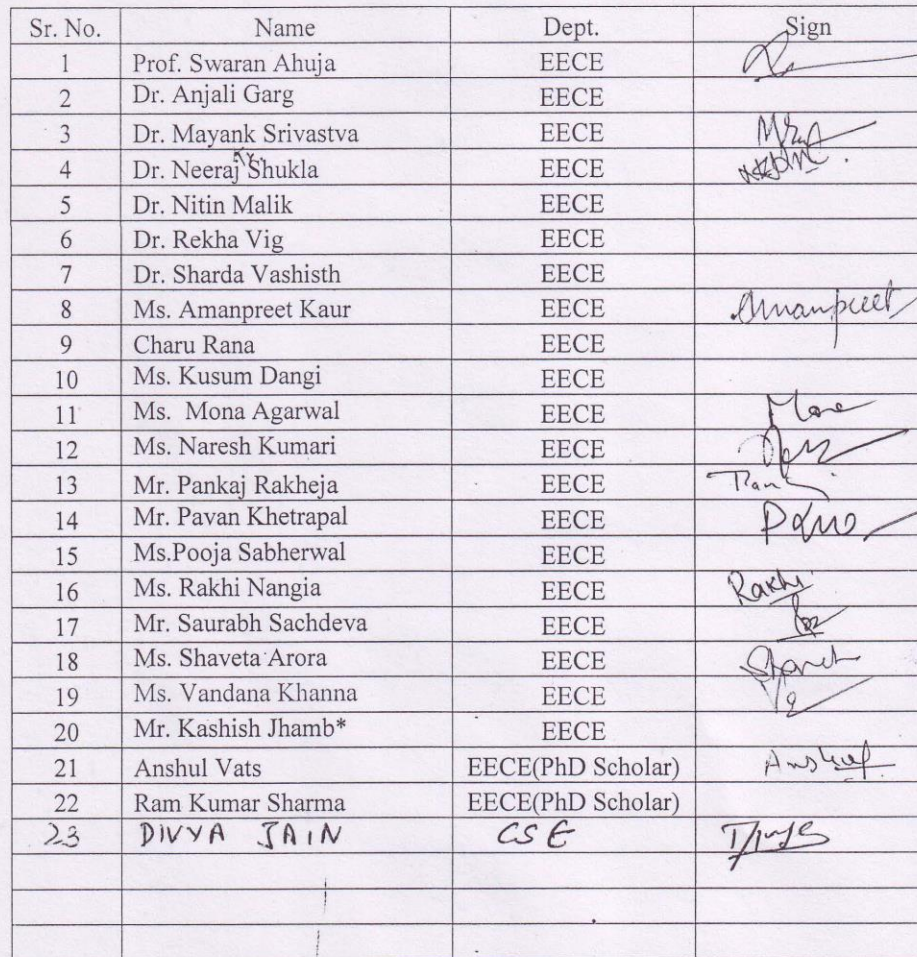 Sr. No. Name Dept. Sign
1 Prof. Swaran Ahuja EECE
2 Dr. Anjali Garg EECE
3 Dr. Mayank Srivastva EECE
4 Dr. Neeraj Kr. Shukla EECE
5 Dr. Nitin Malik EECE
6 Dr. Rekha Vig EECE
7 Dr. Sharda Vashisth EECE
8 Ms. Amanpreet Kaur EECE Amanpreet
9 Charu Rana EECE
10 Ms. Kusum Dangi EECE
11 Ms. Mona Agarwal EECE Mona
12 Ms. Naresh Kumari EECE
13 Mr. Pankaj Rakheja EECE
14 Mr. Pavan Khetrapal EECE
15 Ms.Pooja Sabherwal EECE
16 Ms. Rakhi Nangia EECE Rakhi
17 Mr. Saurabh Sachdeva EECE
18 Ms. Shaveta Arora EECE
19 Ms. Vandana Khanna EECE
20 Mr. Kashish Jhamb* EECE
21 Anshul Vats EECE(PhD Scholar) Anshul
22 Ram Kumar Sharma EECE(PhD Scholar)
23 DIVYA JAIN CSE